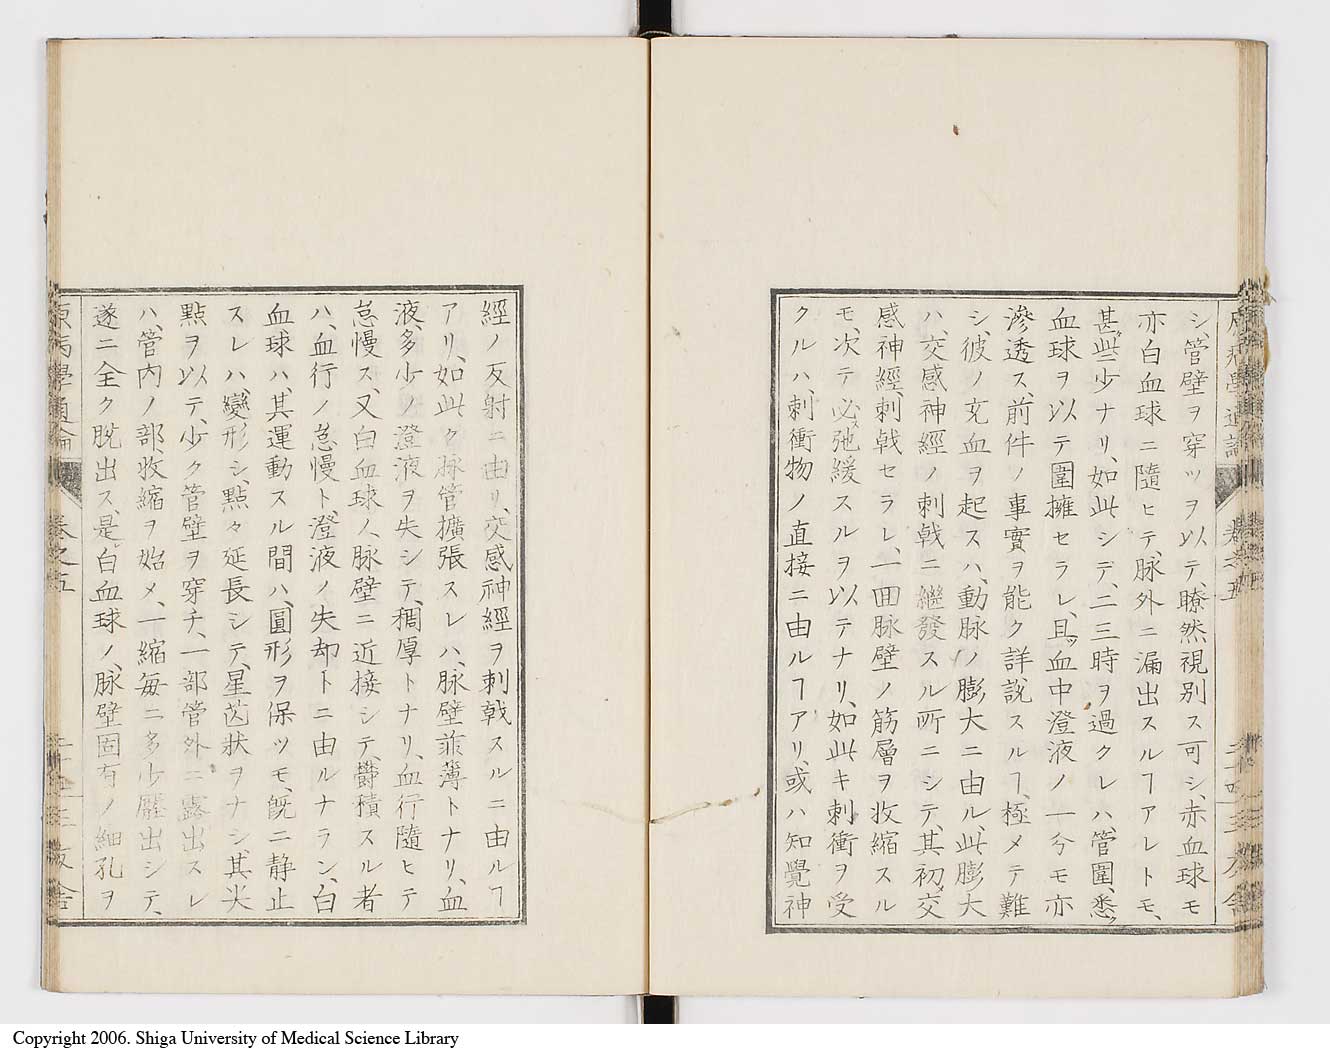 原病學通論
卷之五
シ、管壁ヲ穿ツヲ以テ、瞭然視別ス可シ、赤血球モ
亦白血球ニ隨ヒテ、脉外ニ漏出スルヿアレトモ、
甚些少ナリ、如此シテ、二三時ヲ過クレハ、管圍、悉ク
血球ヲ以テ圍擁セラレ、且ツ血中澄液ノ一分モ亦
滲透ス、前件ノ事實ヲ能ク詳説スルヿ、極メテ難
シ、彼ノ充血ヲ起スハ、動脉ノ膨大ニ由ル、此膨大
ハ、交感神經ノ刺戟ニ繼發スル所ニシテ、其初メ交
感神經、刺戟セラレ、一回脉壁ノ筋層ヲ收縮スル
モ、次テ必ス弛緩スルヲ以テナリ、如此キ刺衝ヲ受
クルハ、刺衝物ノ直接ニ由ルヿアリ、或ハ知覺神
經ノ反射ニ由リ、交感神經ヲ刺戟スルニ由ルヿ
アリ、如此ク脉管擴張スレハ、脉壁菲薄トナリ、血
液、多少ノ澄液ヲ失シテ、稠厚トナリ、血行隨ヒテ
怠慢ス、又白血球ノ、脉壁ニ近接シテ、欝積スル者
ハ、血行ノ怠慢ト、澄液ノ失却トニ由ルナラン、白
血球ハ、其運動スル間ハ、圓形ヲ保ツモ、既ニ静止
スレハ、變形シ、點々延長シテ、星芒狀ヲナシ、其尖
點ヲ以テ、少ク管壁ヲ穿チ、一部管外ニ露出スレ
ハ、管内ノ部收縮ヲ始メ、一縮毎ニ多少壓出シテ、
遂ニ全ク脱出ス、是レ白血球ノ、脉壁固有ノ細孔ヲ
原病學通論
卷之五
Copyright 2006. Shiga University of Medical Science Library